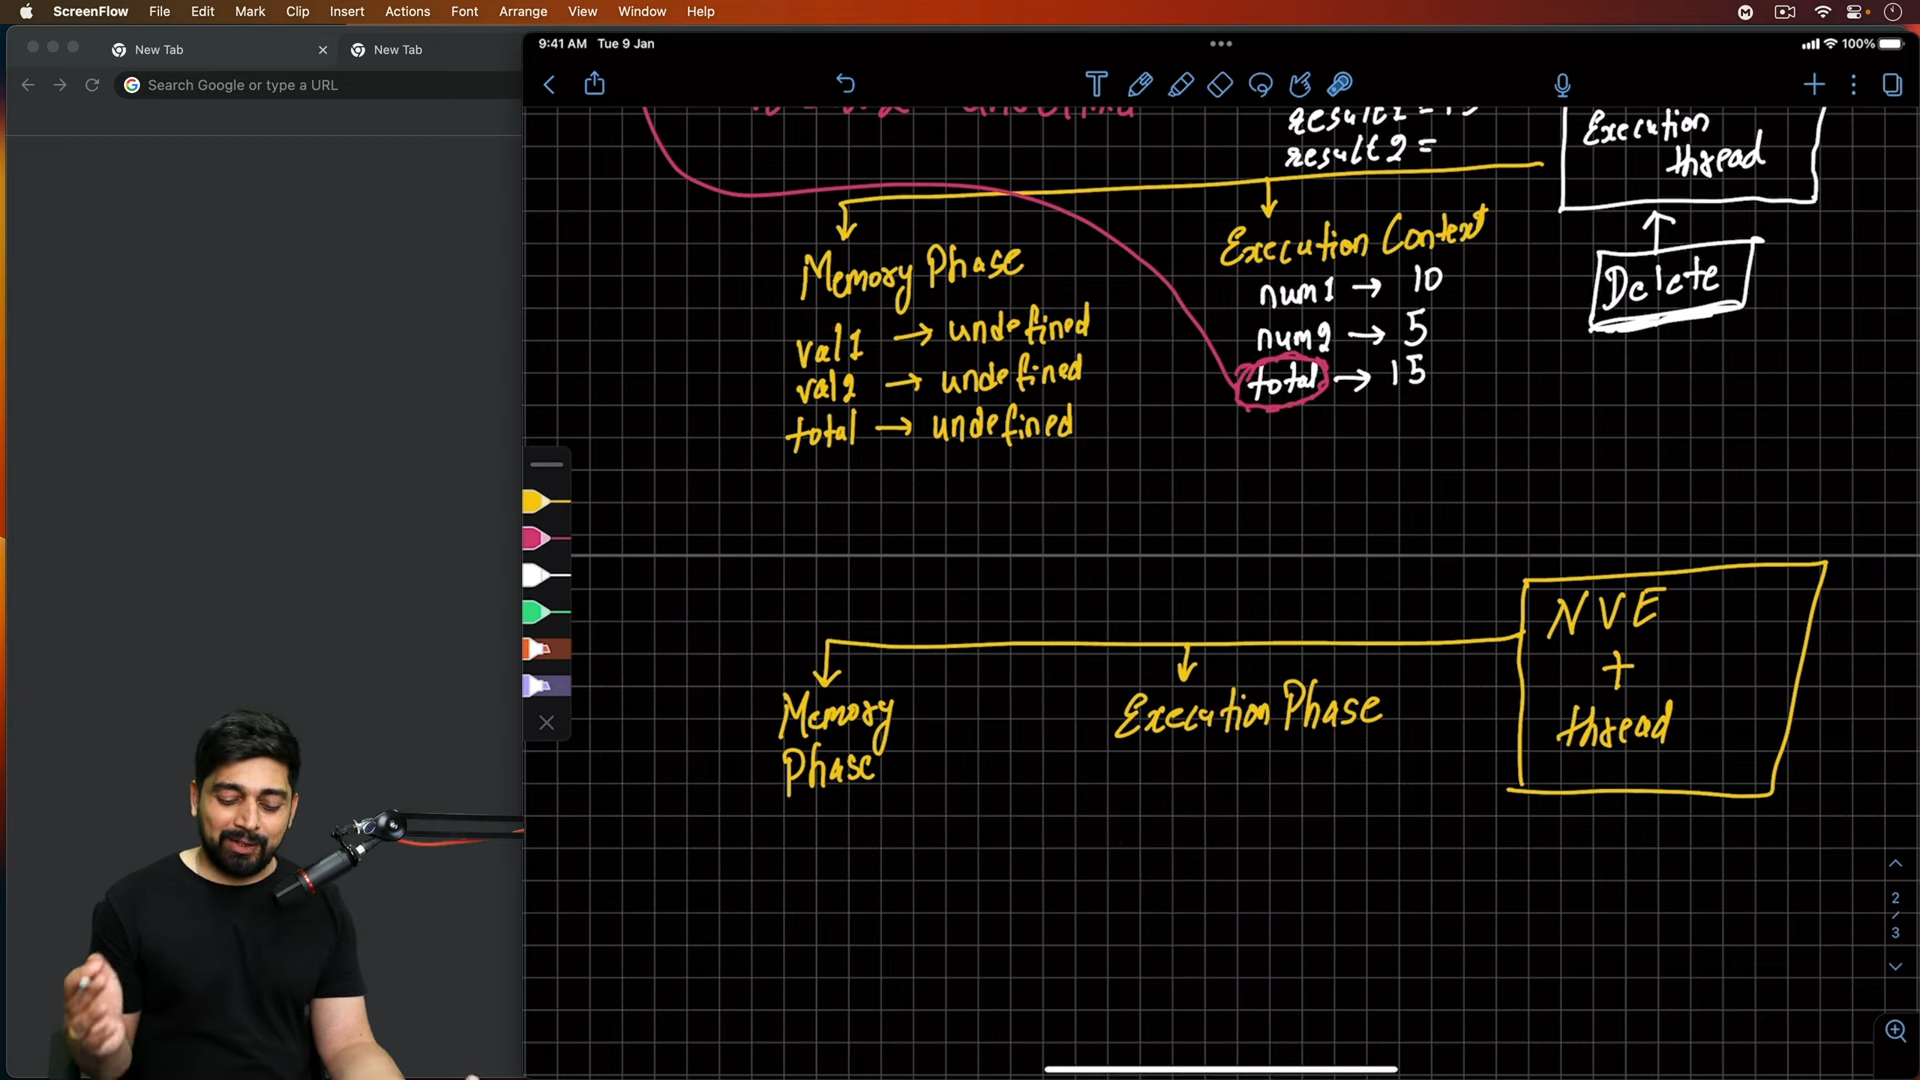 ScreenFlow File Edit Mark Clip Insert Actions Font Arrange View Window Help
New Tab
New Tab
Search Google or type a URL
9:41 AM Tue 9 Jan
100%
result2 =
Execution
thread
Delete
Memory Phase
val1 → undefined
val2 → undefined
total → undefined
Execution Context
num1 → 10
num2 → 5
total → 15
NVE
+
thread
Memory
Phase
Execution Phase
2
3